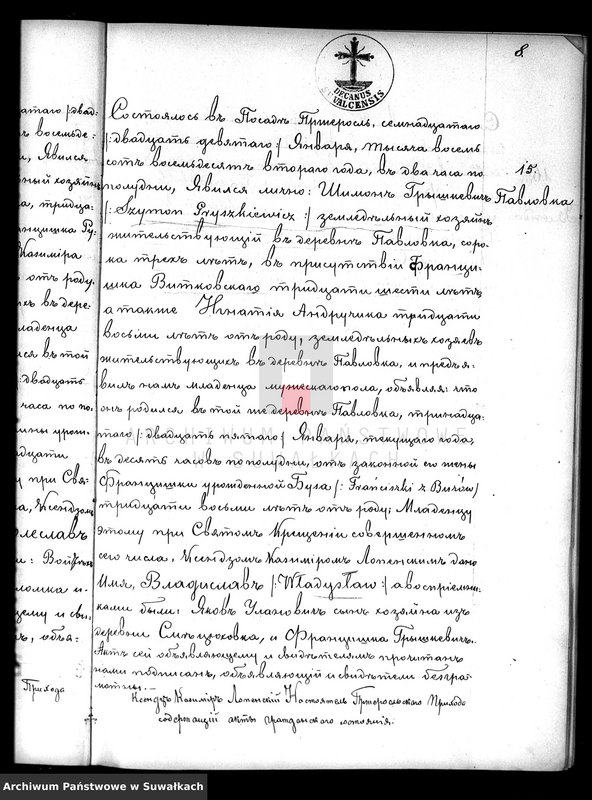 8.
DECANUS
SUVALCENSIS
15.
Павловка
Состоялось въ Посадѣ Пржеросль, семнадцатаго
/: двадцать девятаго :/ Января, тысяча восемь
сотъ восемьдесятъ втораго года, въ два часа по
полудни, Явился лично: Шимонъ Грышкевичъ
/: Szymon Gryszkiewicz :/ земледѣльный хозяинъ
жительствующій въ деревнѣ Павловка, соро-
ка трехъ лѣтъ, въ присутствіи Францы-
шка Витковскаго тридцати шести лѣтъ,
а также Игнатія Андручика тридцати
восьми лѣтъ отъ роду, земледѣльныхъ хозяевъ
жительствующихъ въ деревнѣ Павловка, и предъя-
вилъ намъ младенца мужескаго пола, объявляя: что
онъ родился въ той же деревнѣ Павловка, тринадца-
таго /: двадцать пятаго / Января, текущаго года,
въ десять часовъ по полудни, отъ законной его жены
Францишки урожденной Буза /: Franciszki z Buzów /
тридцати восьми лѣтъ отъ роду; Младенцу
этому при Святомъ Крещеніи совершенномъ
сего числа, Ксендзомъ Казиміромъ Лопенскимъ дано
Имя, Владиславъ /: Władysław :/ а воспріемни-
ками были: Яковъ Улановичъ сынъ хозяина изъ
деревни, и Францишка Грышкевичъ.
Актъ сей объявляющему и свидѣтелямъ прочитанъ
нами подписанъ, объявляющій и свидѣтели безгра-
мотны. —
Ксендзъ Казиміръ Лопенскій Настоятель Пржеросльскаго Прихода
содержащій акты гражданскаго состоянія.
таго /двад-
ъ восемьде-
и, Явился
ный хозяинъ
а, тридца-
нцишка
Казиміра
отъ роду,
хъ въ дере-
младенца
ся въ той
: двадцать
часа по по-
ны урож-
дцати
у при Свя-
а, Ксендзомъ
олеславъ
и: Вой
ломка и
щему и сви-
ъ, объя-
Прихода
ARCHIWUM PAŃSTWOWE
W SUWAŁKACH
Archiwum Państwowe w Suwałkach